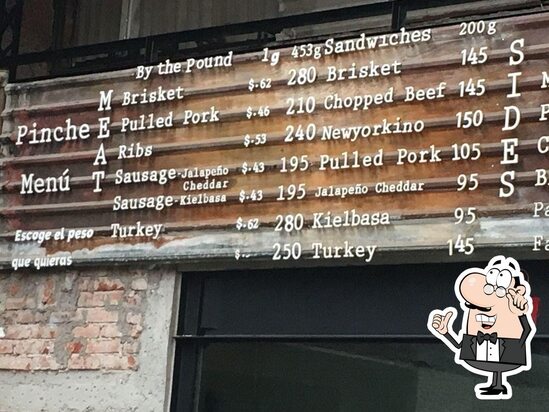 By the Pound 1g 453g Sandwiches 200g
Pinche Menú
Escoge el peso
que quieras
MEAT
Brisket $.62 280 Brisket 145
Pulled Pork $.46 210 Chopped Beef 145
Ribs $.53 240 Newyorkino 150
Sausage-Jalapeño Cheddar $.43 195 Pulled Pork 105
Sausage-Kielbasa $.43 195 Jalapeño Cheddar 95
Turkey $.62 280 Kielbasa 95
250 Turkey 145
SIDES